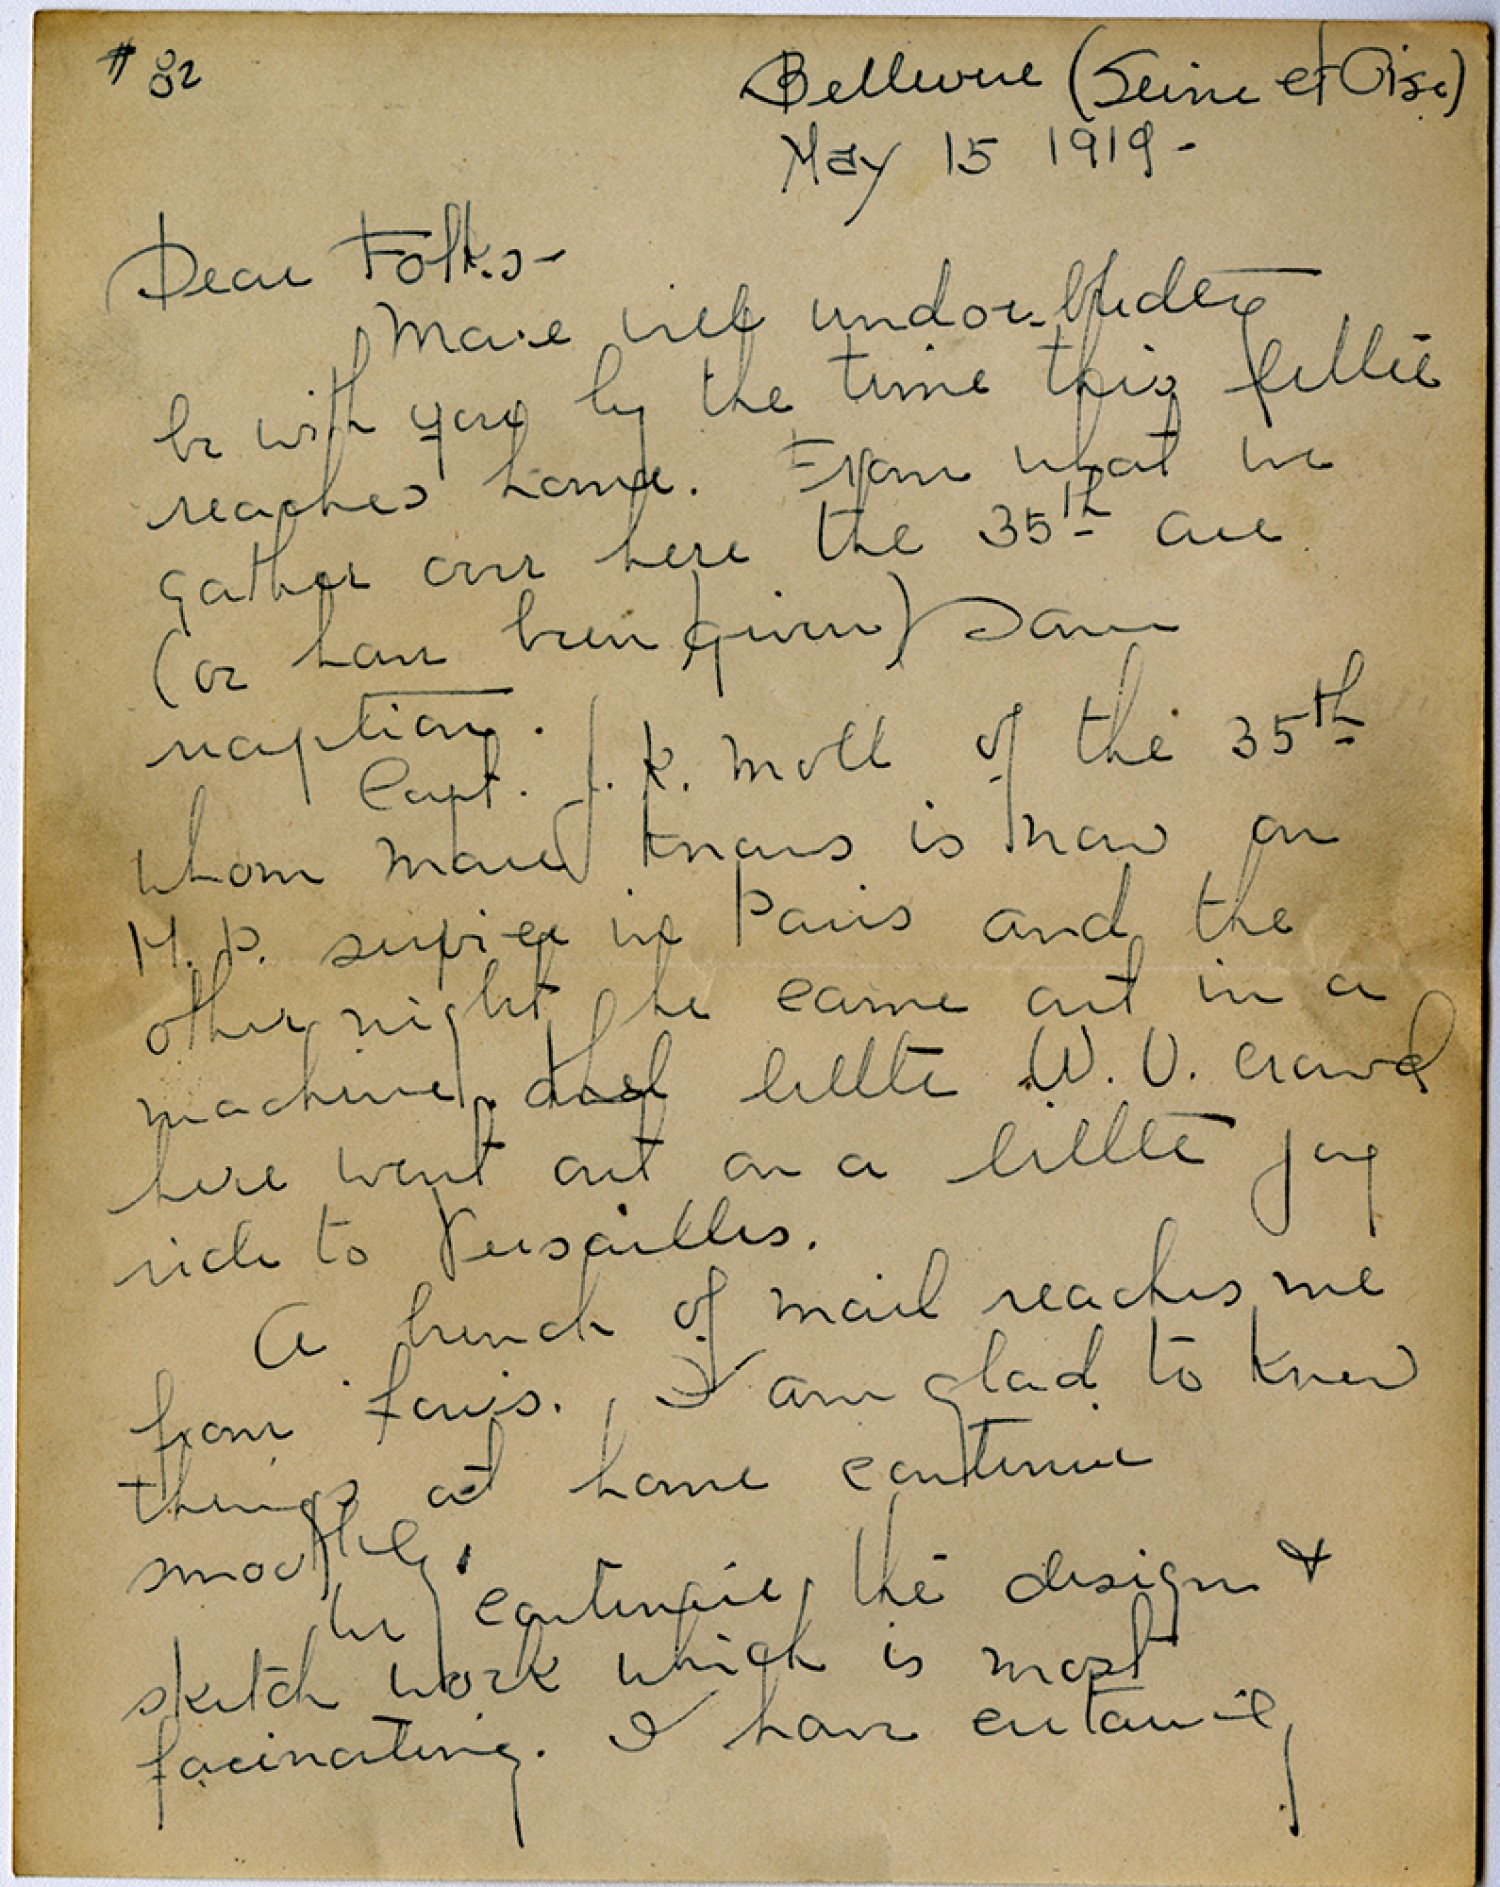 # 82
Bellevue (Seine et Oise)
May 15 1919 -
Dear Folks -
will undoubtedly
be with you by the time this
reaches home. From what we
gather over here the 35th are
(or have been given) some
reception.
Capt. J. K. Moll of the 35th
whom knows is now on
M. P. service in Paris and the
other night he came out in a
machine, the little W. U. crowd
here went out on a little joy
ride to Versailles.
A bunch of mail reaches me
from Paris. I am glad to know
things at home continue
smoothly.
We continue the design &
sketch work which is most
facinating. I have certainly